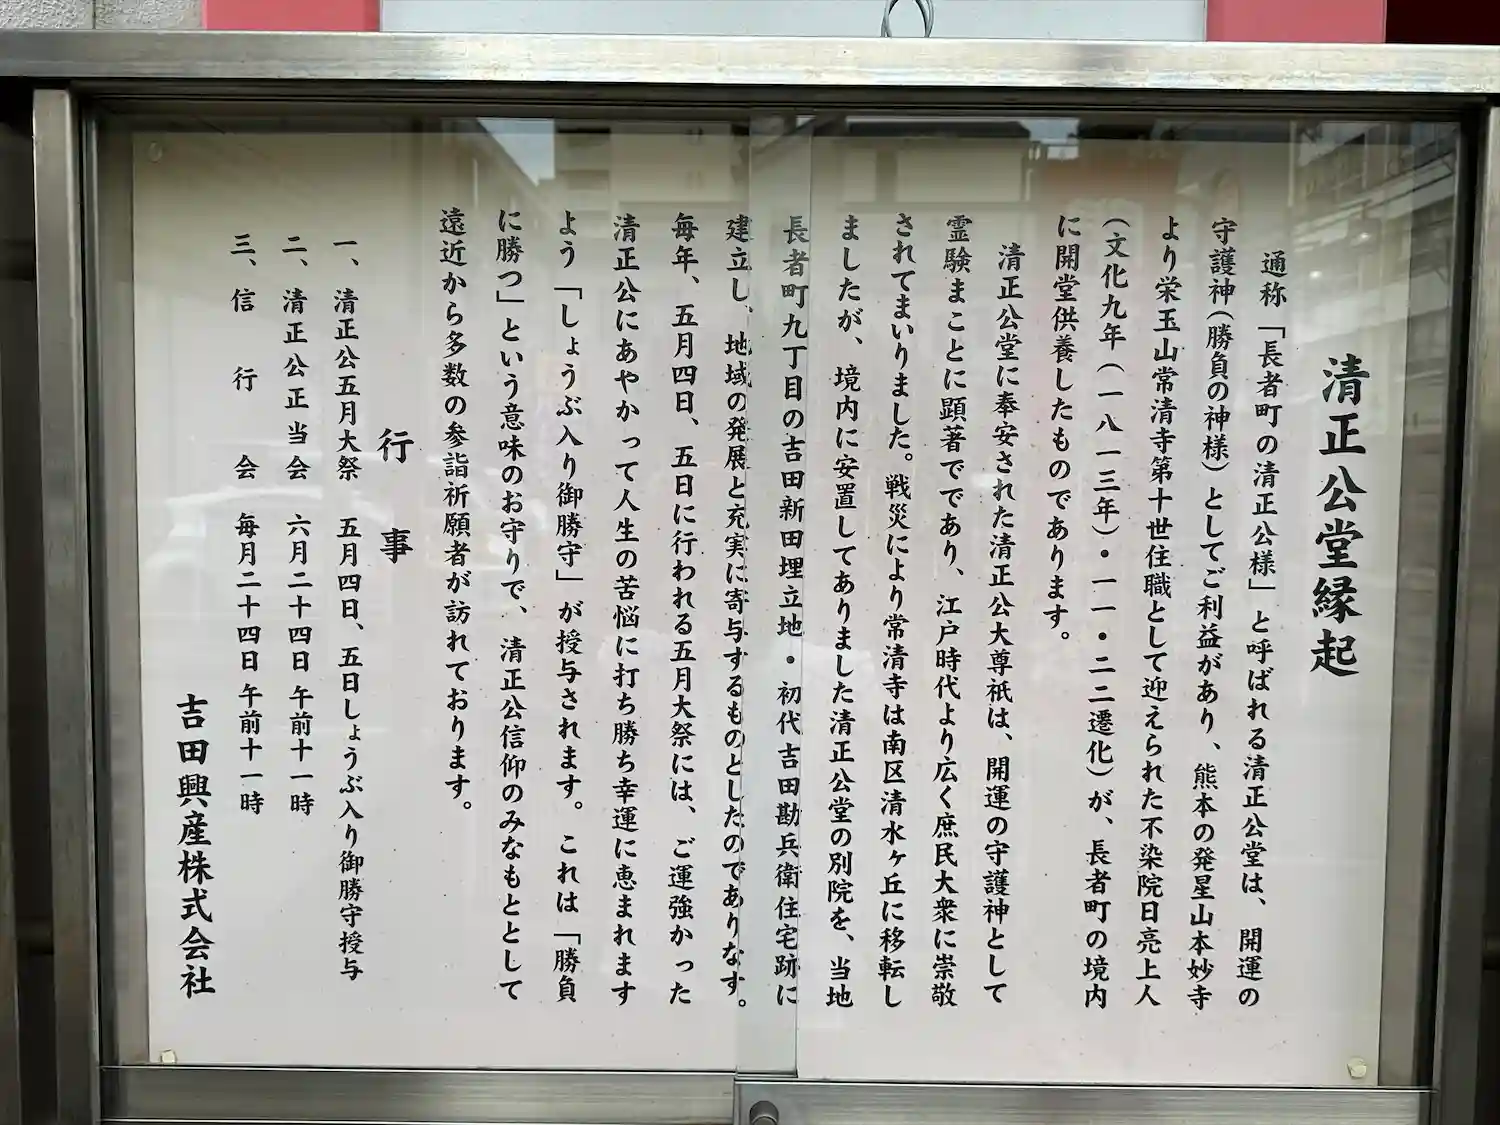 清正公堂縁起
通称「長者町の清正公様」と呼ばれる清正公堂は、開運の
守護神（勝負の神様）としてご利益があり、熊本の発星山本妙寺
より栄玉山常清寺第十世住職として迎えられた不染院日亮上人
（文化九年（一八一三年）・一一・二二遷化）が、長者町の境内
に開堂供養したものであります。
清正公堂に奉安された清正公大尊祇は、開運の守護神として
霊験まことに顕著でであり、江戸時代より広く庶民大衆に崇敬
されてまいりました。戦災により常清寺は南区清水ヶ丘に移転し
ましたが、境内に安置してありました清正公堂の別院を、当地
長者町九丁目の吉田新田埋立地・初代吉田勘兵衛住宅跡に
建立し、地域の発展と充実に寄与するものとしたのでありなす。
毎年、五月四日、五日に行われる五月大祭には、ご運強かった
清正公にあやかって人生の苦悩に打ち勝ち幸運に恵まれます
よう「しょうぶ入り御勝守」が授与されます。これは「勝負
に勝つ」という意味のお守りで、清正公信仰のみなもととして
遠近から多数の参詣祈願者が訪れております。
行事
一、清正公五月大祭 五月四日、五日しょうぶ入り御勝守授与
二、清正公正当会 六月二十四日 午前十一時
三、信行会 毎月二十四日 午前十一時
吉田興産株式会社